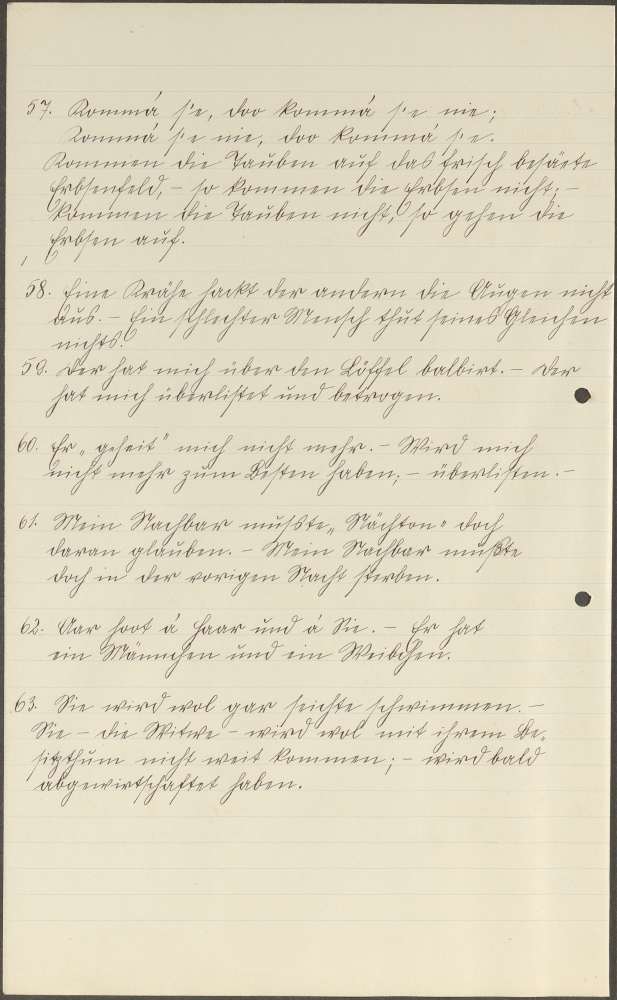 57. Kommá s'e, doo kommá s'e nie;
Kommá s'e nie, doo kommá s'e.
Kommen die Tauben auf das frisch besäete
Erbsenfeld, – so kommen die Erbsen nicht; –
kommen die Tauben nicht, so gehen die
Erbsen auf.
58. Eine Krähe hackt der andern die Augen nicht
aus. – Ein schlechter Mensch thut seines Gleichen
nichts.
59. Der hat mich über den Löffel balbirt. – Der
hat mich überlistet und betrogen.
60. Er „geheit" mich nicht mehr. – Wird mich
nicht mehr zum Besten haben; – überlisten. –
61. Mein Nachbar mußte „Nächton" doch
daran glauben. – Mein Nachbar mußte
doch in der vorigen Nacht sterben.
62. Aar hoot á Haar und á Sie. – Er hat
ein Männchen und ein Weibchen.
63. Sie wird wol gar seichte schwimmen. –
Sie – die Witwe – wird wol mit ihrem Be-
sitzthum nicht weit kommen; – wird bald
abgewirtschaftet haben.